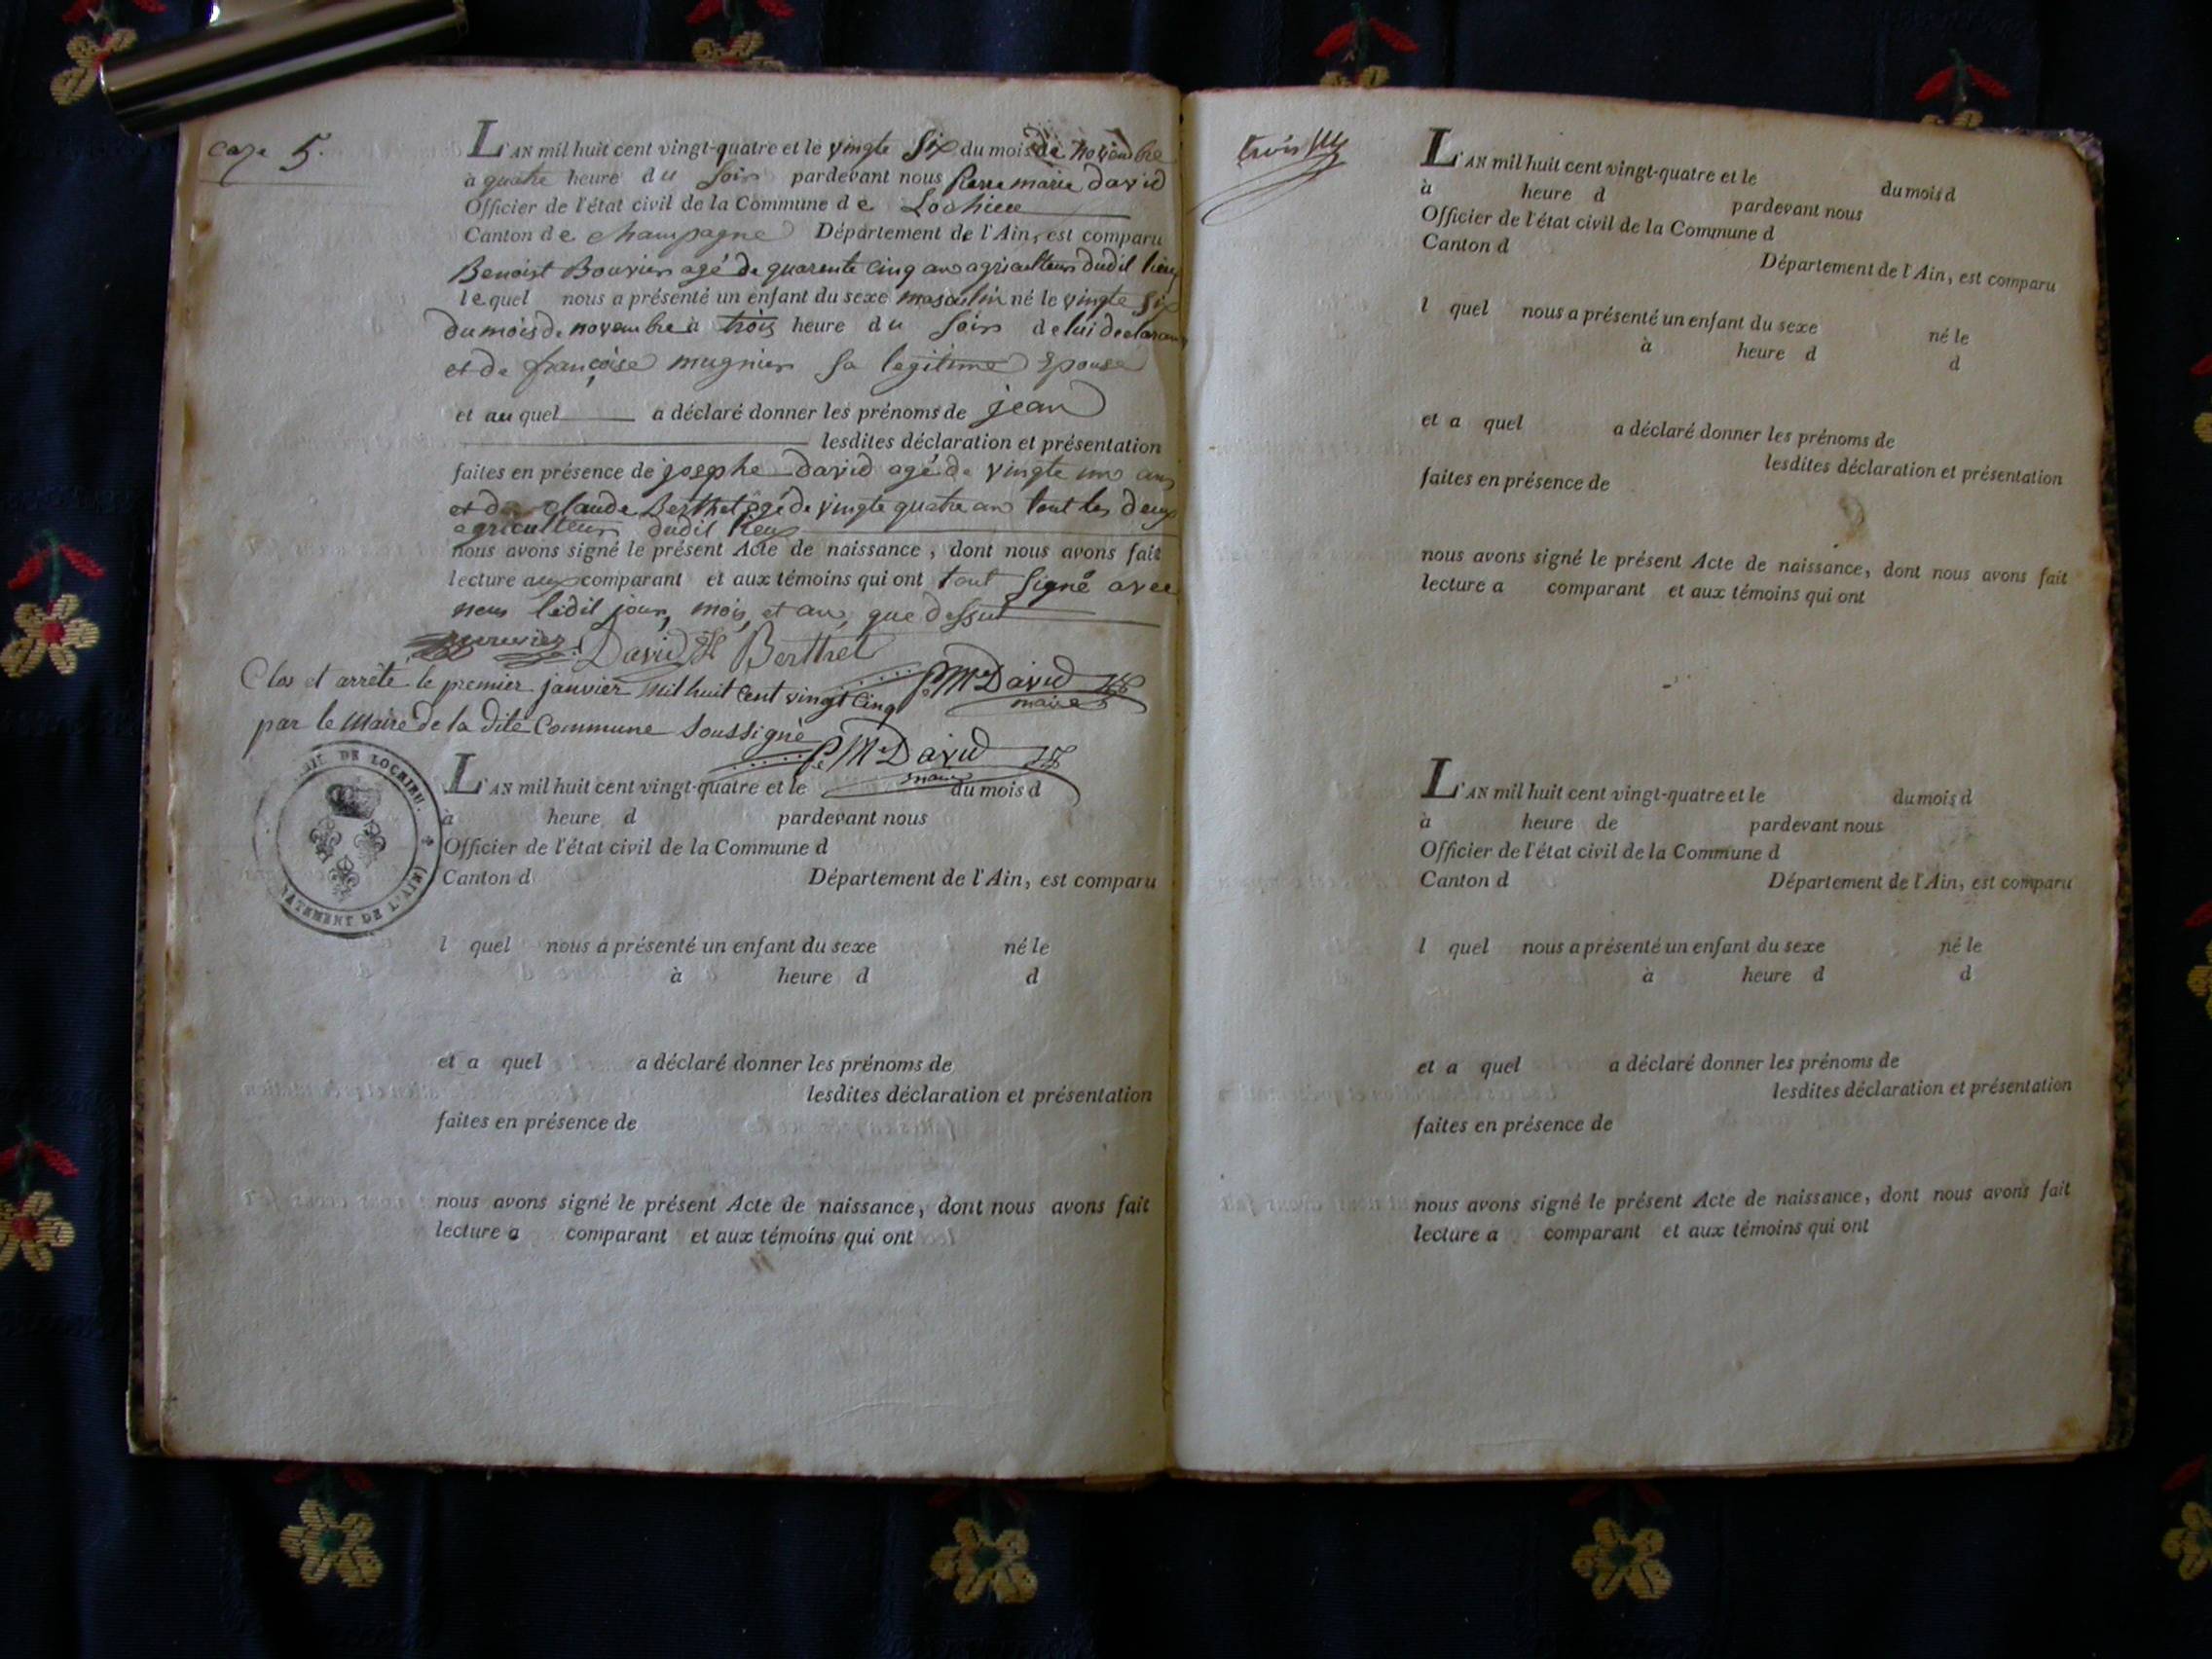 case 5.
L'AN mil huit cent vingt-quatre et le vingte six du mois de novembre
à quatre heure du soir pardevant nous pierre marie david
Officier de l'état civil de la Commune de Lochieu
Canton de champagne Département de l'Ain, est comparu
Benoist Bouvier agé de quarente cinq ans agriculteur dudit lieu
le quel nous a présenté un enfant du sexe masculin né le vingte six
du mois de novembre à trois heure du soir de lui declarant
et de françoise mugnier sa legitime Epouse
et au quel a déclaré donner les prénoms de jean
lesdites déclaration et présentation
faites en présence de josephe david agé de vingte un ans
et de claude Berthet ôgé de vingte quatre ans tout les deux
agriculteur dudit lieu
nous avons signé le présent Acte de naissance, dont nous avons fait
lecture aux comparant et aux témoins qui ont tout signé avec
nous ledit jour, mois, et an, que dessus
Bouvier David Berthet
PMe David
maire
Clos et arrêté le premier janvier mil huit cent vingt cinq
par le Maire de la dite Commune soussigné
PMe David
maire
DE LOCHIEU.
DE L'AIN
L'AN mil huit cent vingt-quatre et le du mois d
à heure d pardevant nous
Officier de l'état civil de la Commune d
Canton d Département de l'Ain, est comparu
l quel nous a présenté un enfant du sexe né le
à heure d d
et a quel a déclaré donner les prénoms de
lesdites déclaration et présentation
faites en présence de
nous avons signé le présent Acte de naissance, dont nous avons fait
lecture a comparant et aux témoins qui ont
trois
L'AN mil huit cent vingt-quatre et le du mois d
à heure d pardevant nous
Officier de l'état civil de la Commune d
Canton d Département de l'Ain, est comparu
l quel nous a présenté un enfant du sexe né le
à heure d d
et a quel a déclaré donner les prénoms de
lesdites déclaration et présentation
faites en présence de
nous avons signé le présent Acte de naissance, dont nous avons fait
lecture a comparant et aux témoins qui ont
L'AN mil huit cent vingt-quatre et le du mois d
à heure de pardevant nous
Officier de l'état civil de la Commune d
Canton d Département de l'Ain, est comparu
l quel nous a présenté un enfant du sexe né le
à heure d d
et a quel a déclaré donner les prénoms de
lesdites déclaration et présentation
faites en présence de
nous avons signé le présent Acte de naissance, dont nous avons fait
lecture a comparant et aux témoins qui ont